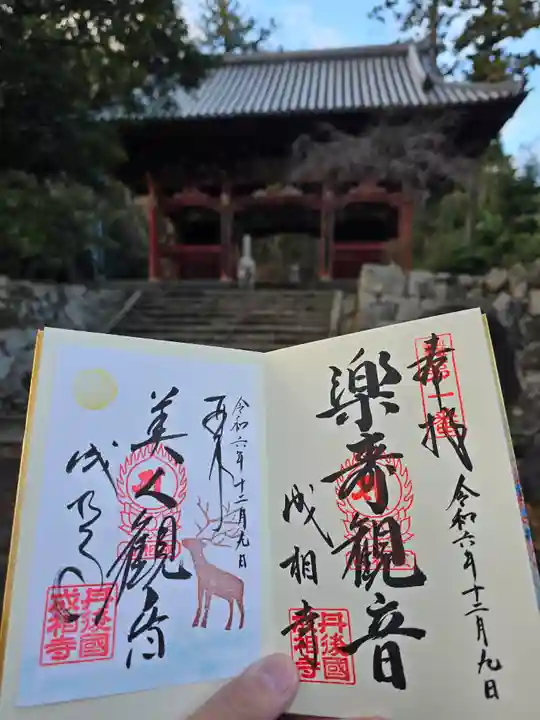 奉拝
令和六年十二月九日
樂壽観音
成相寺
丹後國
成相寺
令和六年十二月九日
美人観音
丹後國
成相寺